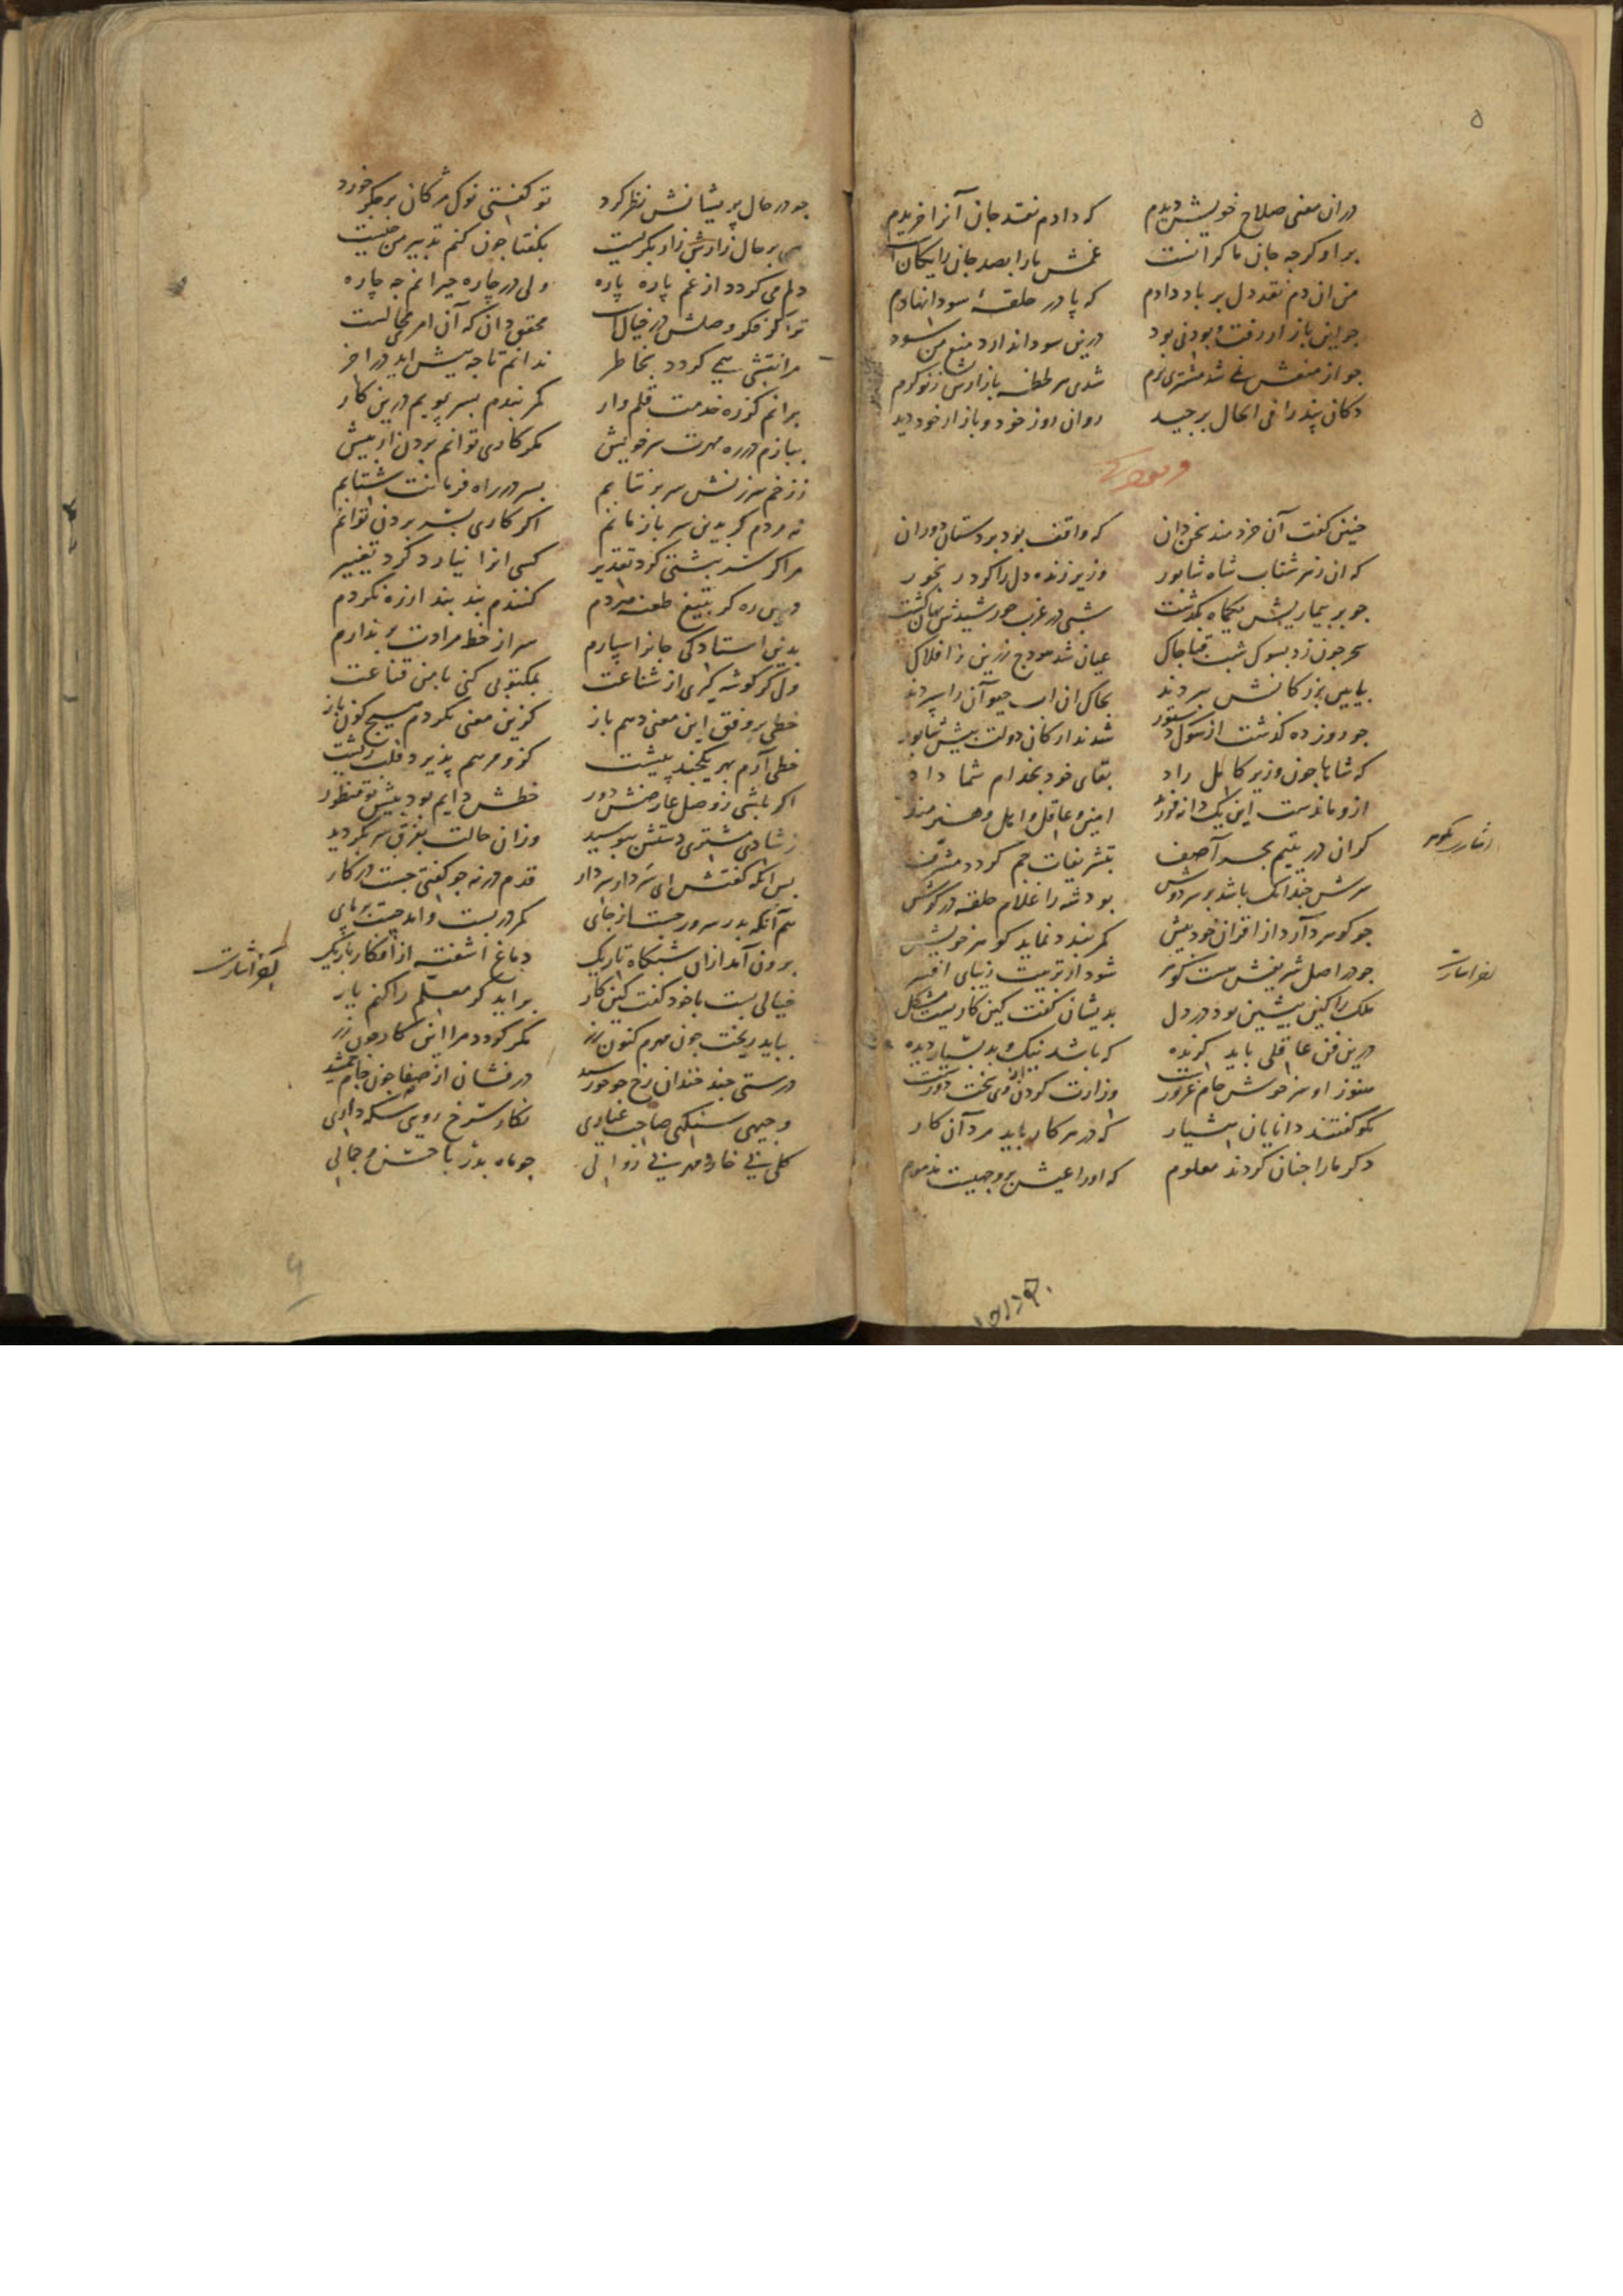 ۵
دران معنی صلاح خویش دیدم که دادم نقد جان آنرا خریدم
بر او کرجه جان ما کرانست غمش مارا بصد جان رایکان
من ان دم نقد دل بر باد دادم که پا در حلقهٔ سودا نهادم
جو این بازار رفت و بودنی بود درین سودا ندارد منع من سود
جو از منعش شد مشتری نرم شدی هر لحظه بازارش زنو کرم
دکان پند را فی الحال برجید روان روز خود و بازار خود دید
جنین کفت آن خردمند سخن دان که واقف بود بر دستان دوران
که ان زهر شتاب شاه شابور وزیر زنده دل را کرد رنجور
جو بر بیماریش یکماه بکذشت شبی در غرب خورشیدش نهان کشت
سحر جون زد بسوک شب قبا جاک عیان شد هودج زرین ز افلاک
بایین بزرکانش سپردند بخاک ان اب حیوان را سپردند
جو روز ده کذشت از سوک دستور شدند ارکان دولت پیش شابور
که شاها جون وزیر کامل راد بقای خود بخدام شما داد
ازو ماندست این یک دانه فرزند امین و عاقل و اهل و هنرمند
کر ان در یتیم بحر آصف بتشریفات جم کردد مشرف
سرش جندانک باشد بر سر دوش بود شه را غلام حلقه در کوش
جو کوهر دارد از اقران خود بیش کمر بندد نماید کوهر خویش
جو در اصل شریفش هست کوهر شود از تربیت زیبای افسر
ملک را کین پیشین بود در دل بدیشان کفت کین کاریست مشکل
درین فن عاقلی باید کزیده که باشد نیک و بد بسیار دیده
هنوز او سرخوش جام غرورست وزارت کردن از وی سخت دورست
نکو کفتند دانایان هشیار که در هر کار باید مرد آن کار
دکر مارا جنان کردند معلوم که اورا عیش بر وجهیست مذموم
جو در حال پریشانش نظر کرد تو کفتی نوک مژکان بر جکر خورد
بسی بر حال زارش زار بکریست بکفتا جون کنم تدبیر من جیست
دلم می کردد از غم پاره پاره ولی در چاره حیرانم جه چاره
ترا کر فکر وصلش در خیال است محقق دان که آن امر محالست
مرا نقشی نمی کردد بخاطر ندانم تا جه پیش اید در اخر
برانم کز ره خدمت قلم وار کمر بندم بسر پویم درین کار
ببازم در ره مهرت سر خویش مکر کاری توانم بردن از پیش
ز زخم سرزنش سر برنتابم بسر در راه فرمانت شتابم
نه مردم کر بدین سر باز مانم اکر کاری بسر بردن توانم
مرا کر سر نبشتی کرد تقدیر کسی انرا نیارد کرد تغییر
درین ره کر بتیغ طعنه مردم کنندم بند بند از ره نکردم
بدین استادکی جان را سپارم سر از خط مرادت بر ندارم
ولی کر کوشه کیری از شناعت بمکتوبی کنی با من قناعت
خطی بر وفق این معنی دهم باز کزین معنی نکردم هیچ کون باز
خطی آرم بهر یکجند پیشت کزو مرهم پذیرد قلب ریشت
اکر باشی ز وصل عارضش دور خطش دایم بود پیش تو منظور
ز شادی مشتری دستش ببوسید وزان حالت بفرق سر بکردید
پس انکه کفتش ای سردار سردار قدم در نه جو کفتی جست در کار
هم آنکه بدر سرور جست از جای کمر دربست و امد جست بر پای
برون آمد ازان شبکاه تاریک دماغ اشفته از افکار باریک
خیالی بست با خود کفت کین کار براید کر معلم را کنم یار
بباید ریخت جون مهرم کنون زر مکر کردد مرا این کار جون زر
درستی جند خندان رخ جو خورشید درفشان از صفا جون جام جمشید
وجیهی سنکی صاحب عیاری نکاری سرخ روی سکه داری
کلی بی خار و مهر بی زوالی جو ماه بدر با حسن و جمالی